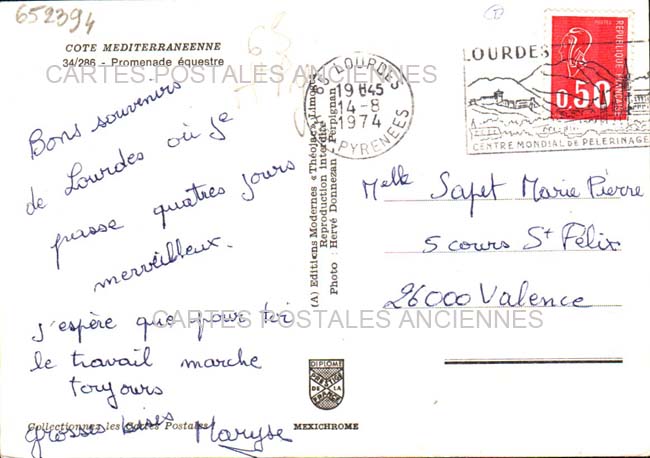 652394
COTE MEDITERRANEENNE
34/286 - Promenade équestre
CARTES POSTALES ANCIENNES
Bons souvenirs
de Lourdes où je
passe quatres jours
merveilleux.
j'espère que pour toi
le travail marche
toujours
grosses bises Maryse
Collectionnez les Cartes Postales
CARTES POSTALES ANCIENNES
(A) Editions Modernes « Théojac » Limoges
Reproduction Interdite
Photo : Hervé Donnezan - Perpignan
DIPLOME
PRESTIGE
DE LA
FRANCE
MEXICHROME
LOURDES
19 H45
14-8
1974
PYRENEES
LOURDES
CENTRE MONDIAL DE PELERINAGE
POSTES
REPUBLIQUE FRANCAISE
0,50
Melle Sapet Marie Pierre
5 cours St Félix
26000 Valence